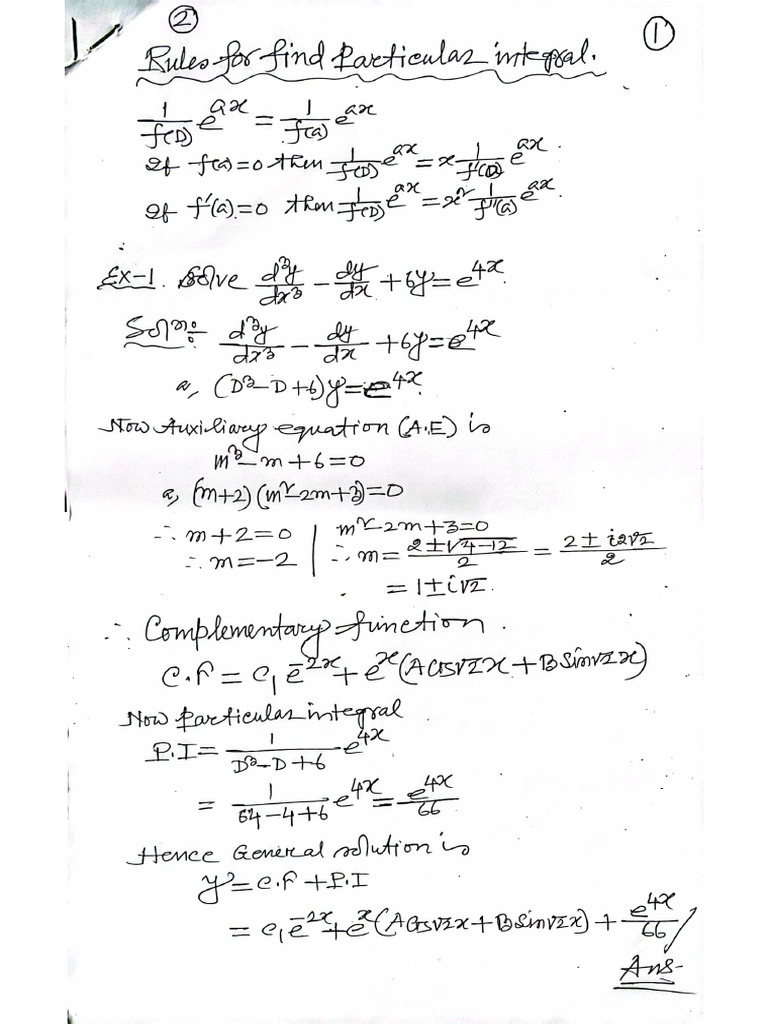 ② ①
Rules for find Particular integral.
1/f(D) e^ax = 1/f(a) e^ax
If f(a)=0 then 1/f(D) e^ax = x 1/f'(D) e^ax.
If f'(a)=0 then 1/f(D) e^ax = x² 1/f''(a) e^ax.
Ex-1. Solve d³y/dx³ - dy/dx + 6y = e^4x.
Soln: d³y/dx³ - dy/dx + 6y = e^4x
a, (D³-D+6)y = e^4x.
Now Auxiliary equation (A.E) is
m³-m+6=0
a, (m+2)(m²-2m+3)=0
∴ m+2=0 | m²-2m+3=0
∴ m=-2 | ∴ m = 2±√4-12/2 = 2±i2√2/2
= 1±i√2.
∴ Complementary function.
C.F = c₁e^-2x + e^x(A cos√2x + B sin√2x)
Now Particular integral
P.I = 1/D³-D+6 e^4x
= 1/64-4+6 e^4x = e^4x/66
Hence General solution is
y = C.F + P.I
= c₁e^-2x + e^x(A cos√2x + B sin√2x) + e^4x/66 /
Ans-